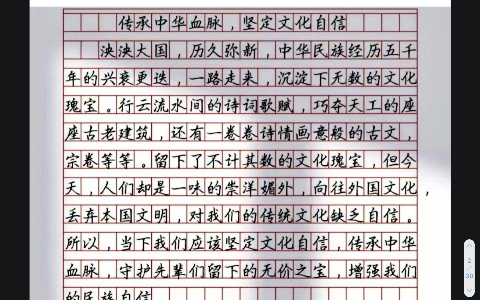 传承中华血脉，坚定文化自信
泱泱大国，历久弥新，中华民族经历五千
年的兴衰更迭，一路走来，沉淀下无数的文化
瑰宝。行云流水间的诗词歌赋，巧夺天工的座
座古老建筑，还有一卷卷诗情画意般的古文，
宗卷等等。留下了不计其数的文化瑰宝，但今
天，人们却是一味的崇洋媚外，向往外国文化，
丢弃本国文明，对我们的传统文化缺乏自信。
所以，当下我们应该坚定文化自信，传承中华
血脉，守护先辈们留下的无价之宝，增强我们
的民族自信
2
30